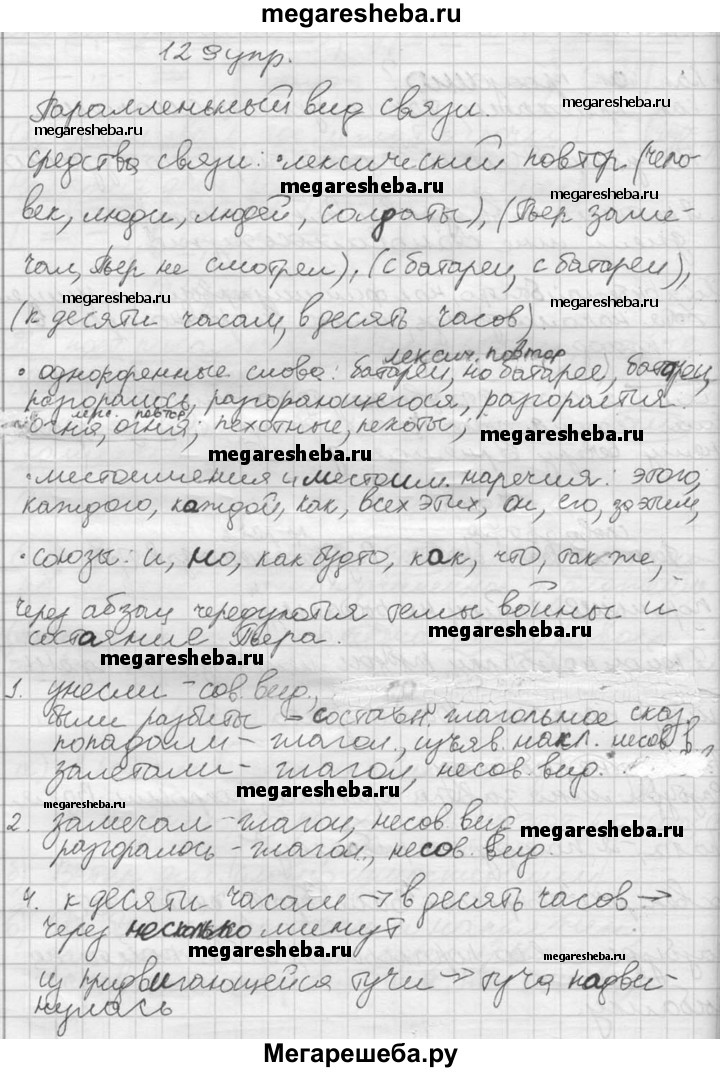 megaresheba.ru
129 упр.
megaresheba.ru
megaresheba.ru
Параллельный вид связи.
megaresheba.ru
средства связи: • лексический повтор (чело-
megaresheba.ru
megaresheba.ru
век, люди, людей, солдаты), (Пьер заме-
чал, Пьер не смотрел), (с батареи, с батареи),
megaresheba.ru
megaresheba.ru
(к десяти часам, в десять часов).
лексич. повтор
• однокоренные слова: батареи, на батарее, батареи,
разгоралось, разгорающегося, разгорается.
лекс. повтор
огня, огня; пехотные, пехоты;
megaresheba.ru
• местоимения и местоим. наречия: этого,
каждого, каждой, как, всех этих, он, его, за этим,
megaresheba.ru
megaresheba.ru
• союзы: и, но, как будто, как, что, так же,
через абзац чередуются темы войны и
состаяние Пьера.
megaresheba.ru
megaresheba.ru
1. унесли – сов. вид.,
были разбиты – составн. глагольное сказ.
попадали – глагол., изъяв. накл. несов. в.
залетали – глагол, несов. вид.
megaresheba.ru
megaresheba.ru
2. замечал – глагол, несов вид
megaresheba.ru
разгоралось – глагол., несов. вид.
4. к десяти часам → в десять часов →
через несколько минут
megaresheba.ru
megaresheba.ru
из придвигающейся тучи → туча надви-
нулась
Мегарешеба.ру